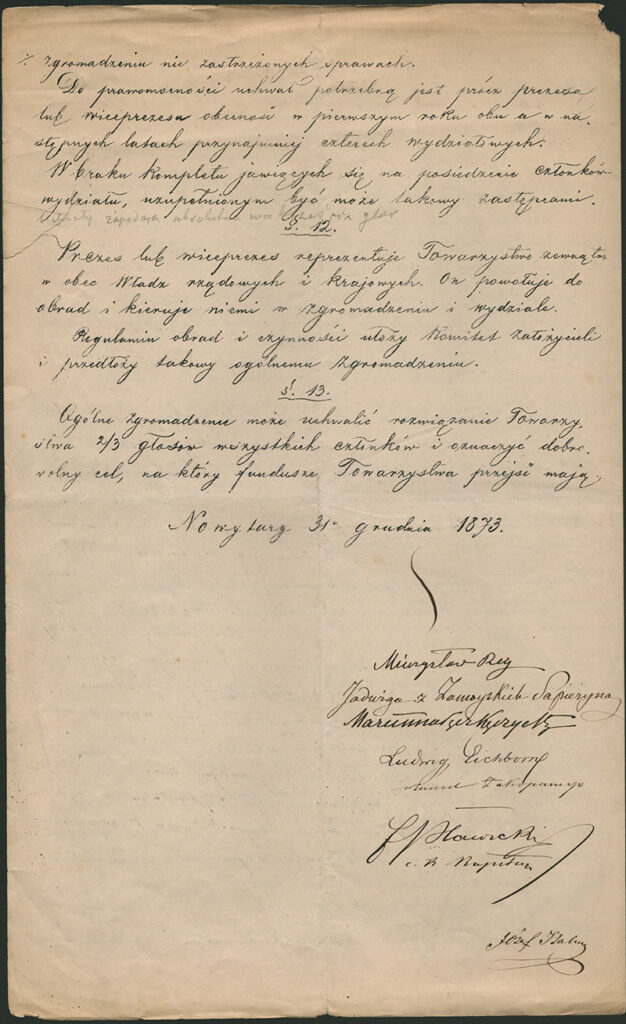 ·/. zgromadzeniu nie zastrzeżonych sprawach.
Do prawomocności uchwał potrzebną jest prócz prezesa
lub wiceprezesa obecność w pierwszym roku obu a w na-
stępnych latach przynajmniej czterech wydziałowych.
W braku kompletu jawiących się na posiedzenie członków
wydziału, uzupełnionym być może takowy zastępcami.
uchwały zapadają
§. 12.
Prezes lub wiceprezes reprezentuje Towarzystwo zewnątrz
w obec Władz rządowych i krajowych. On powołuje do
obrad i kieruje niemi w zgromadzeniu i wydziale.
Regulamin obrad i czynności ułoży Komitet założycieli
i przedłoży takowy ogólnemu Zgromadzeniu.
§. 13.
Ogólne zgromadzenie może uchwalić rozwiązanie Towarzy-
stwa 2/3 głosów wszystkich członków i oznaczyć dobro-
wolny cel, na który fundusze Towarzystwa przejść mają.
Nowytarg 31o grudnia 1873.
Mieczysław Rey
Jadwiga z Zamoyskich Sapieżyna
Ludwig Eichborn
Zakopanego
Pławicki
c. k. Kapitan
Józef